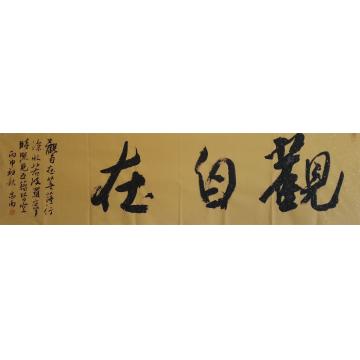 觀自在
觀自在菩薩行
深般若波羅蜜多
時照見五蘊皆空
丙申初秋